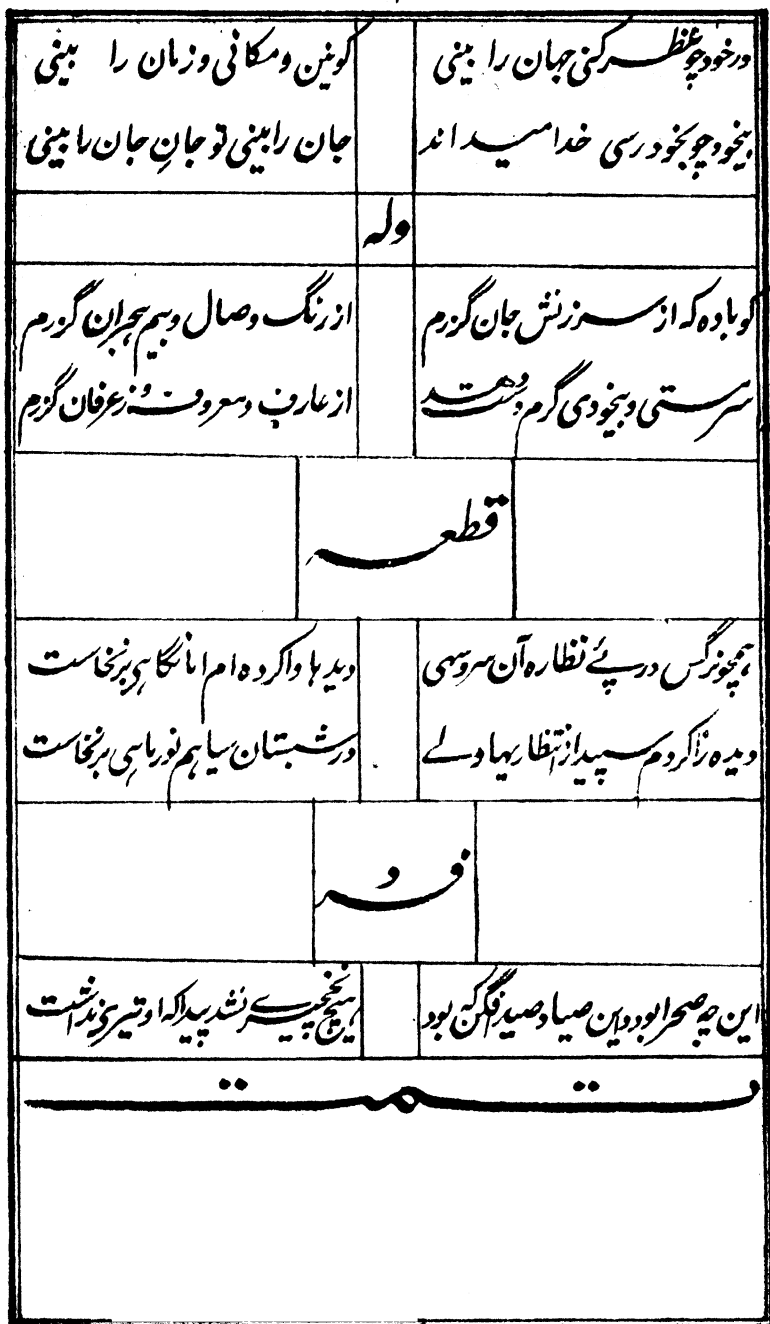 در خود چو نظر کنی جهان را بینی کونین و مکانی و زمان را بینی
بیخود چو بخود رسی خدا میداند جان را بینی تو جانِ جان را بینی
وله
کو باده که از سرزنش جان گزرم از رنگ وصال و بیم هجران گزرم
سرمستی و بیخودی گرم دست دهد از عارف و معروف و ز عرفان گزرم
قطعه
همچو نرگس در پئے نظاره آن سرو سهی دیدها واکرده ام اما نگاهی برنخاست
دیده را کردم سپید از انتظاریها ولے در شبستان سیاهم نور ماهی برنخاست
فرد
این چه صحرا بود و این صیاد صید افگن که بود هیچ نخچیرے نشد پیدا که او تیری نداشت
تمت